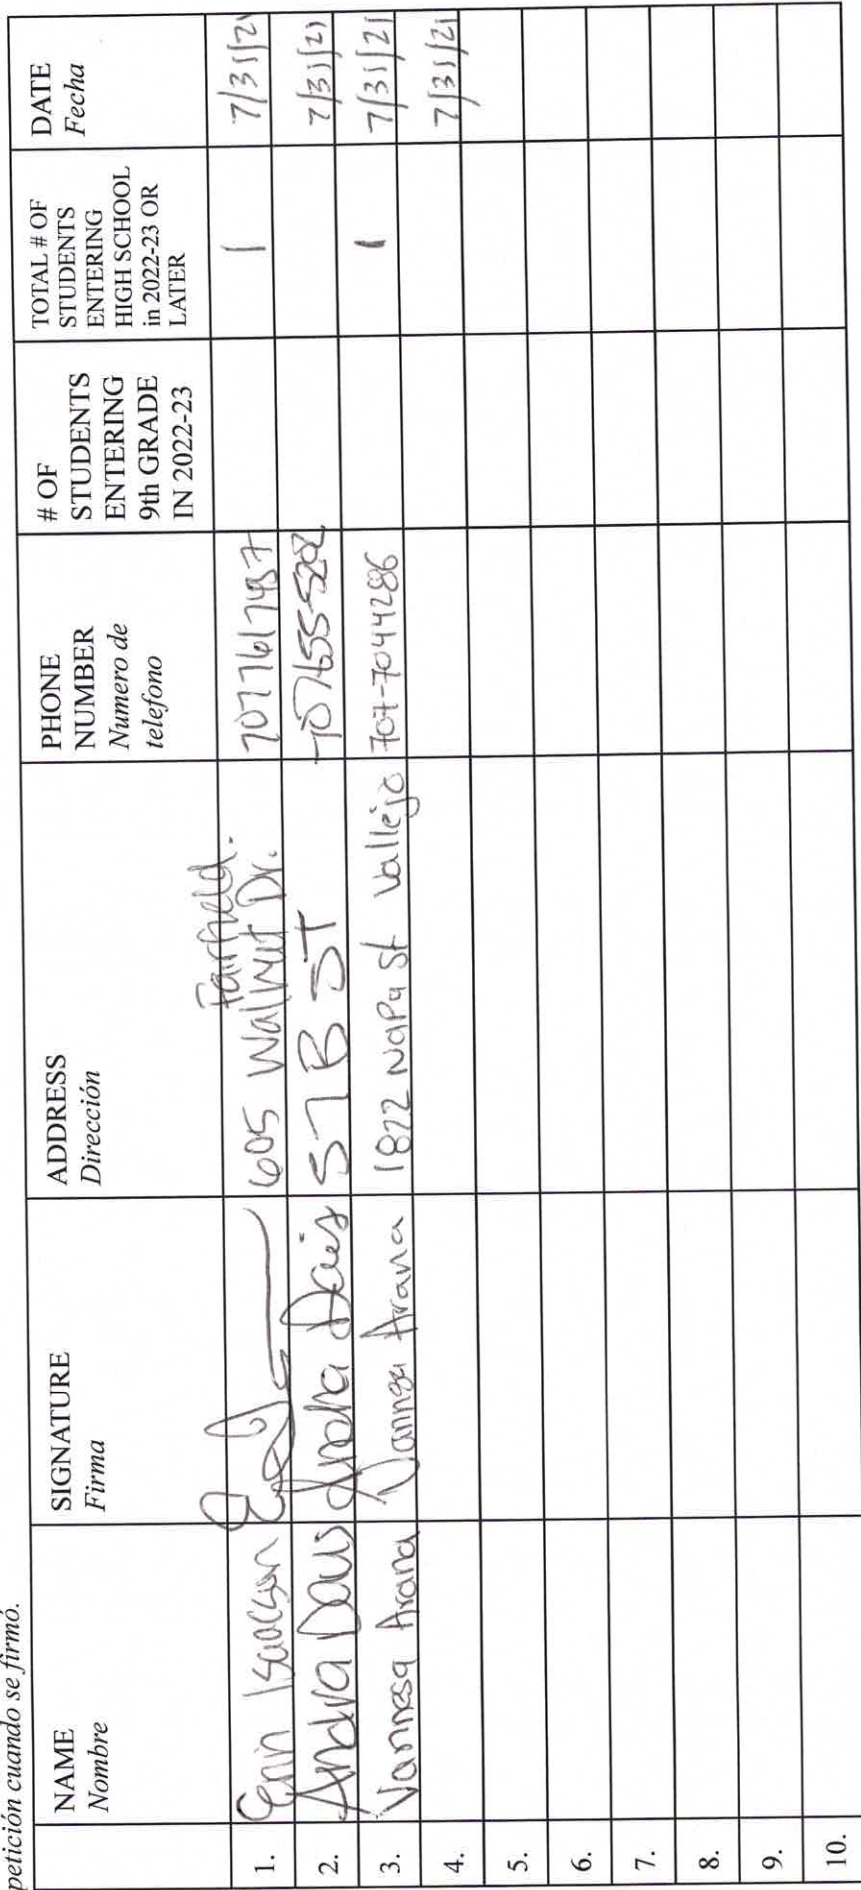 petición cuando se firmó.
NAME
Nombre
SIGNATURE
Firma
ADDRESS
Dirección
PHONE
NUMBER
Numero de
telefono
# OF
STUDENTS
ENTERING
9th GRADE
IN 2022-23
TOTAL # OF
STUDENTS
ENTERING
HIGH SCHOOL
in 2022-23 OR
LATER
DATE
Fecha
1. Erin Isaacson 605 Walnut Dr. Fairfield. 7077617437 1 7/31/21
2. Andra Davis Andra Davis 51 B ST 7/31/21
3. Vannesa Arana Vannesa Arana 1822 Napa St Vallejo 707-7044286 1 7/31/21
4. 7/31/21
5.
6.
7.
8.
9.
10.